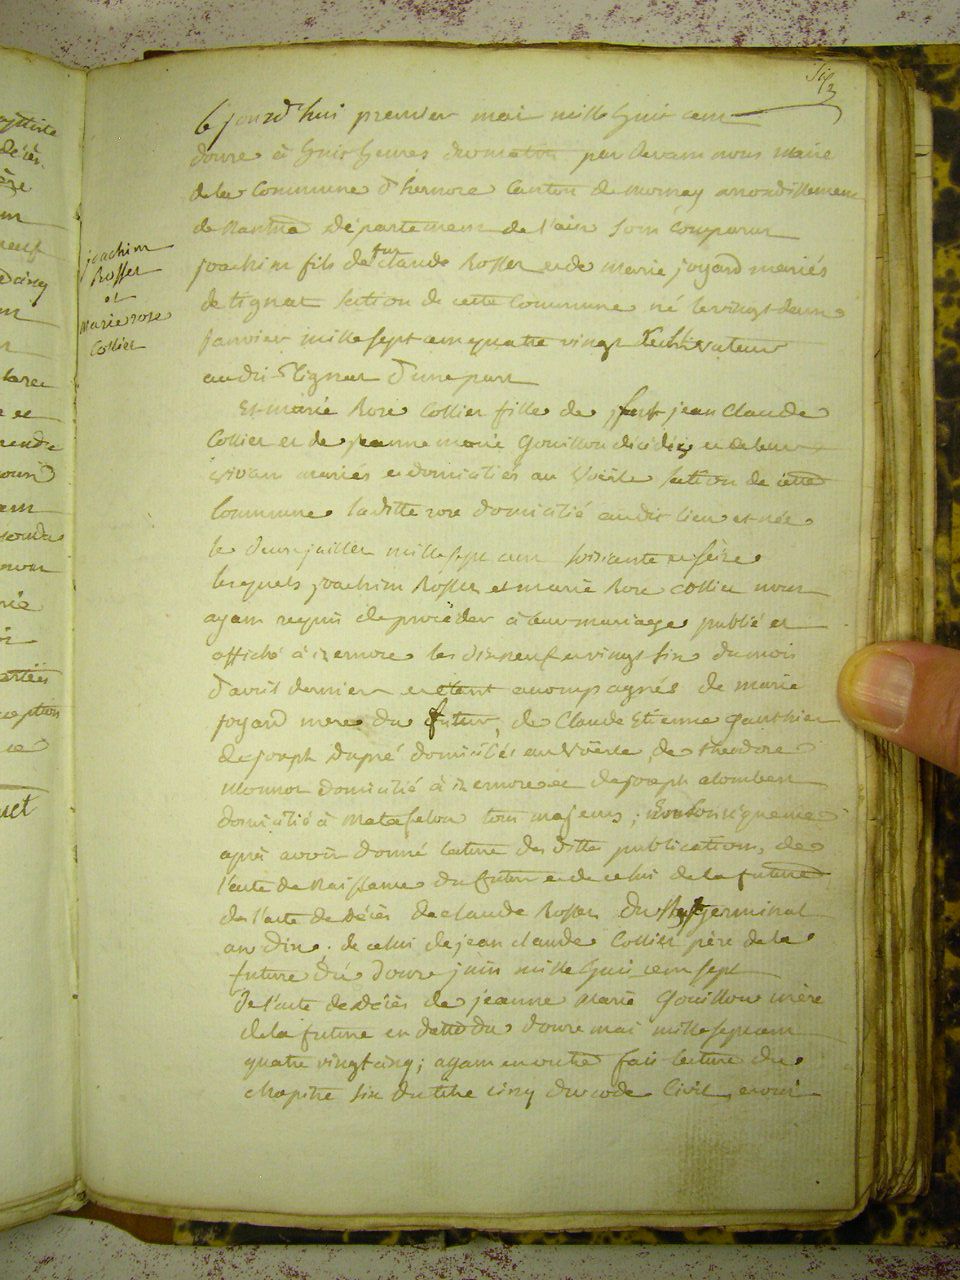 joachim
Rosset
et
Marie rose
Collier
Ce jourd'hui premier mai mille huit cent
douze à huit heures du matin par devant nous maire
de la Commune d'hernore Canton de mornay arrondissement
de Nantua département de l'ain sont comparus
joachim fils de fut claude Rosset et de marie joyard mariés
de tignat section de cette Commune né le vingt deux
janvier mille sept cent quatre vingt cultivateur
audit tignat d'une part
Et marie Rose Collier fille de jean Claude
Collier et de jeanne marie Gouillou décédés
vivant mariés et domiciliés au Voërle section de cette
Commune laditte rose domicilié audit lieu et née
le deux juillet mille sept cent soisicante et seize
lesquels joachim Rosset et marie Rose collier nous
ayant requis de procéder à leur mariage publié et
affiché à izernore les dix neuf et vingt six du mois
d'avril dernier et étant acompagnés de marie
joyard mere du futur, de Claude Etienne Gauthier
de joseph dupré domiciliés au Voërle, de theodore
Monnot domicilié à izernore et de joseph alombert
domicilié à Matafelon tous majeurs;
après avoir donné lecture des dittes publications, de
l'acte de Naissance du futur et de celui de la future
de l'acte de décès de claude Rosset du germinal
an dix. de celui de jean claude Collier père de la
future du douze juin mille huit cent sept
de l'acte de décès de jeanne Marie Gouillou mère
de la future en datte du douze mai mille sept cent
quatre vingt cinq; ayant en outre fait lecture du
chapitre six du titre cinq du code Civil,